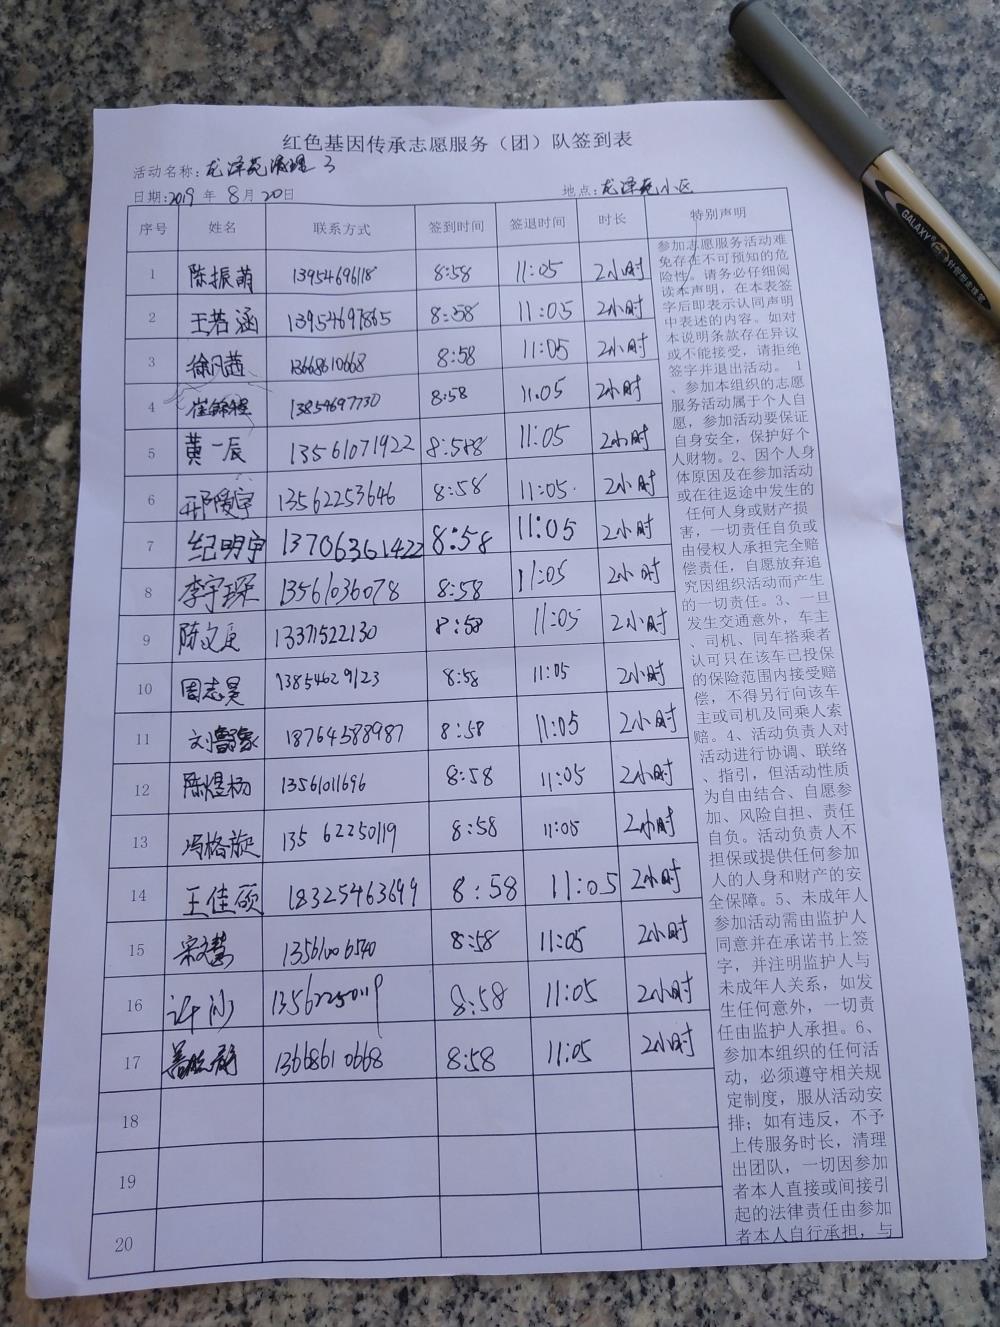 红色基因传承志愿服务（团）队签到表
活动名称: 龙泽苑清理 3
日期:2019 年 8 月 20 日 地点: 龙泽苑小区
序号 姓名 联系方式 签到时间 签退时间 时长 特别声明
1 陈振萌 13954696118 8:58 11:05 2小时
2 王若涵 13954697865 8:58 11:05 2小时
3 徐凡茜 13668610668 8:58 11:05 2小时
4 13854697730 8:58 11.05 2小时
5 黄一辰 13561071922 8:588 11:05 2小时
6 邢媛宇 13562253646 8:58 11:05 2小时
7 纪明宇 13706361422 8:58 11:05 2小时
8 李宇琛 13561036078 8:58 11:05 2小时
9 陈文 13371522130 8:58 11:05 2小时
10 周志昊 13854629123 8:58 11:05 2小时
11 刘 18764588987 8:58 11:05 2小时
12 陈煜杨 13561011696 8:58 11:05 2小时
13 冯格旋 135 62250119 8:58 11:05 2小时
14 王佳硕 18325463699 8:58 11:05 2小时
15 宋文慧 13561006540 8:58 11:05 2小时
16 许 13562250119 8:58 11:05 2小时
17 13668610668 8:58 11:05 2小时
18
19
20
参加志愿服务活动难
免存在不可预知的危
险性。请务必仔细阅
读本声明，在本表签
字后即表示认同声明
中表述的内容。如对
本说明条款存在异议
或不能接受，请拒绝
签字并退出活动。 1
、参加本组织的志愿
服务活动属于个人自
愿，参加活动要保证
自身安全，保护好个
人财物。2、因个人身
体原因及在参加活动
或在往返途中发生的
任何人身或财产损
害，一切责任自负或
由侵权人承担完全赔
偿责任，自愿放弃追
究因组织活动而产生
的一切责任。3、一旦
发生交通意外，车主
、司机、同车搭乘者
认可只在该车已投保
的保险范围内接受赔
偿，不得另行向该车
主或司机及同乘人索
赔。4、活动负责人对
活动进行协调、联络
、指引，但活动性质
为自由结合、自愿参
加、风险自担、责任
自负。活动负责人不
担保或提供任何参加
人的人身和财产的安
全保障。5、未成年人
参加活动需由监护人
同意并在承诺书上签
字，并注明监护人与
未成年人关系，如发
生任何意外，一切责
任由监护人承担。6、
参加本组织的任何活
动，必须遵守相关规
定制度，服从活动安
排；如有违反，不予
上传服务时长，清理
出团队，一切因参加
者本人直接或间接引
起的法律责任由参加
者本人自行承担，与
GALAXY